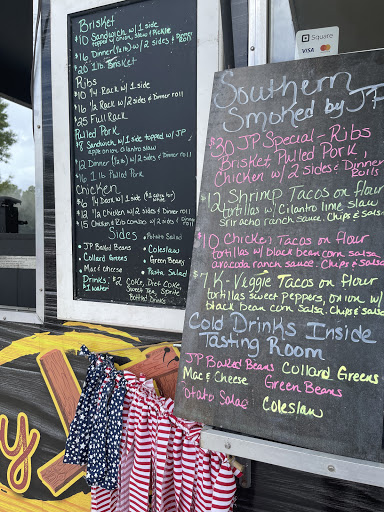 Brisket
$10 Sandwich w/ 1 side
topped w/ onion, slaw & Pickle
$16 Dinner (½ lb) w/ 2 sides & Dinner Roll
$20 1 lb. Brisket
Ribs
$10 ¼ Rack w/ 1 side
$16 ½ Rack w/ 2 sides & Dinner roll
$25 Full Rack
Pulled Pork
$8 Sandwich w/ 1 side topped w/ JP
apple onion Cilantro slaw
$12 Dinner (½ lb) w/ 2 sides & Dinner roll
$16 1 lb Pulled Pork
Chicken
$6 ¼ Dark w/ 1 side
$12 ½ Chicken w/ 2 sides & Dinner roll
$15 Chicken & Rib combo w/ 2 sides & Dinner roll
Sides
• Potato Salad
• JP Baked Beans
• Coleslaw
Collard Greens
• Green Beans
Mac & Cheese
• Pasta Salad
Drinks:
$1 water
$2 Coke, Diet Coke,
Sweet Tea, Sprite
Bottled Drinks
Square
VISA
Southern
Smoked by JP
$20 JP Special - Ribs
Brisket Pulled Pork
Chicken w/ 2 sides & Dinner
Rolls
$12 Shrimp Tacos on flour
tortillas w/ Cilantro lime slaw
sriracha ranch sauce. Chips & Salsa
$10 Chicken Tacos on flour
tortillas w/ black bean corn salsa
avacado ranch sauce. Chips & Salsa
$7 K-Veggie Tacos on flour
tortillas sweet peppers, onion w/
black bean corn salsa. Chips & Salsa
Cold Drinks Inside
Tasting Room
JP Baked Beans Collard Greens
Mac & Cheese Green Beans
Potato Salad Coleslaw